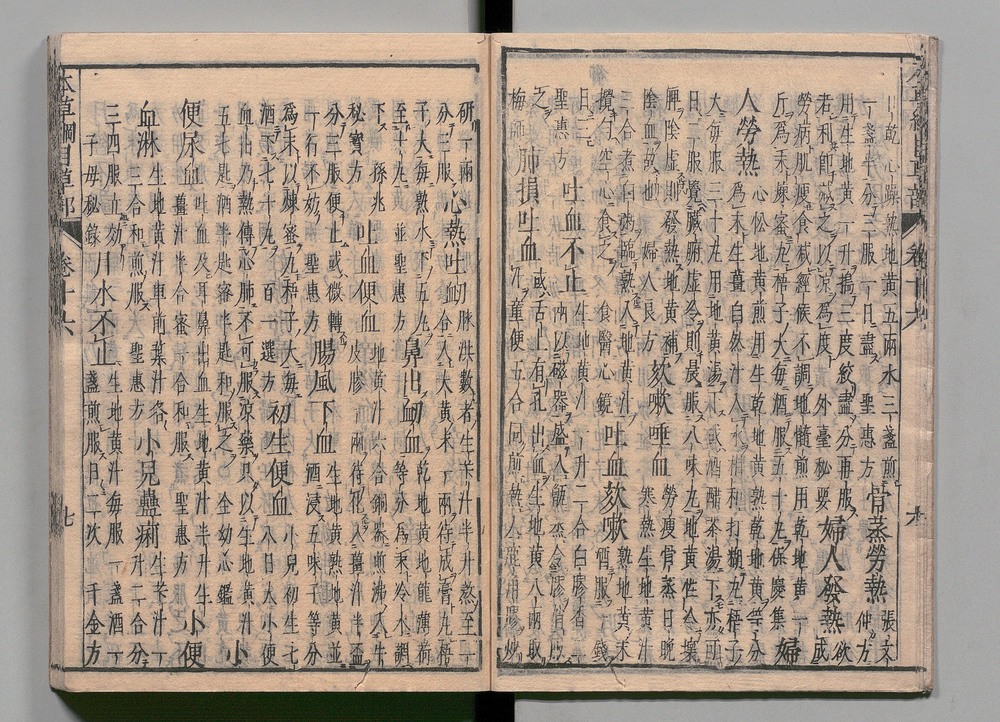 乾心躁熟地黄五兩水三盞煎
一盞半分三服一日盡聖惠方骨蒸勞熱張文仲方
用生地黄一升搗三度絞盡分再服
若利即減之以凉為度外臺秘要婦人發熱欲成
勞病肌瘦食減經候不調地髓煎用乾地黄一
斤為末煉蜜丸梧子大每酒服五十丸保慶集婦
人勞熱心忪地黄煎用生乾地黄熟乾地黄等分
為末生薑自然汁入水相和打糊丸梧子
大每服三十丸用地黄湯下或酒醋茶湯下亦可
日服覺臟腑虚冷則晨服八味丸地黄性冷壞
脾陰虚則發熱地黄補
陰血故也婦人良方欬嗽唾血勞瘦骨蒸日晩
寒熱生地黄汁
三合煮白粥臨熟入地黄汁
攪匀空心食之食醫心鏡吐血欬嗽熟地黄末
酒服一錢
日三聖惠方吐血不止生地黄汁一升二合白膠香
二兩以磁器盛入甑蒸令膠消服
之梅師肺損吐血或舌上有孔出血生地黄八兩取
汁童便五合同煎熱入鹿角膠炒
研一兩分三服心熱吐衂脉洪數者生苄汁半升熬至一
合入大黄末一兩待成膏丸梧
子大每熟水下五丸至十丸並聖惠方鼻出衂血乾地黄地龍薄荷
等分為末冷水調
下孫兆秘寳方吐血便血地黄汁六合銅器煎沸入牛
皮膠一兩待化入薑汁半盃
分三服便止或微轉一行不妨聖惠方腸風下血生地黄熟地黄並
酒浸五味子等分
為末以煉蜜丸梧子大每酒下七十丸百一選方初生便血小兒初生七
八日大小便
血出乃熱傳心肺不可服凉藥只以生地黄汁
五七匙酒半匙蜜半匙和服之全幼心鑑小
便尿血吐血及耳鼻出血生地黄汁半升生
薑汁半合蜜一合和服聖惠方小便
血淋生地黄汁車前葉汁各三合和煎服聖惠方小兒蠱痢生苄汁一
升二合分
三四服立効子母秘錄月水不止生地黄汁每服一盞酒一
盞煎服日二次千金方
本草綱目草部 卷十六 七